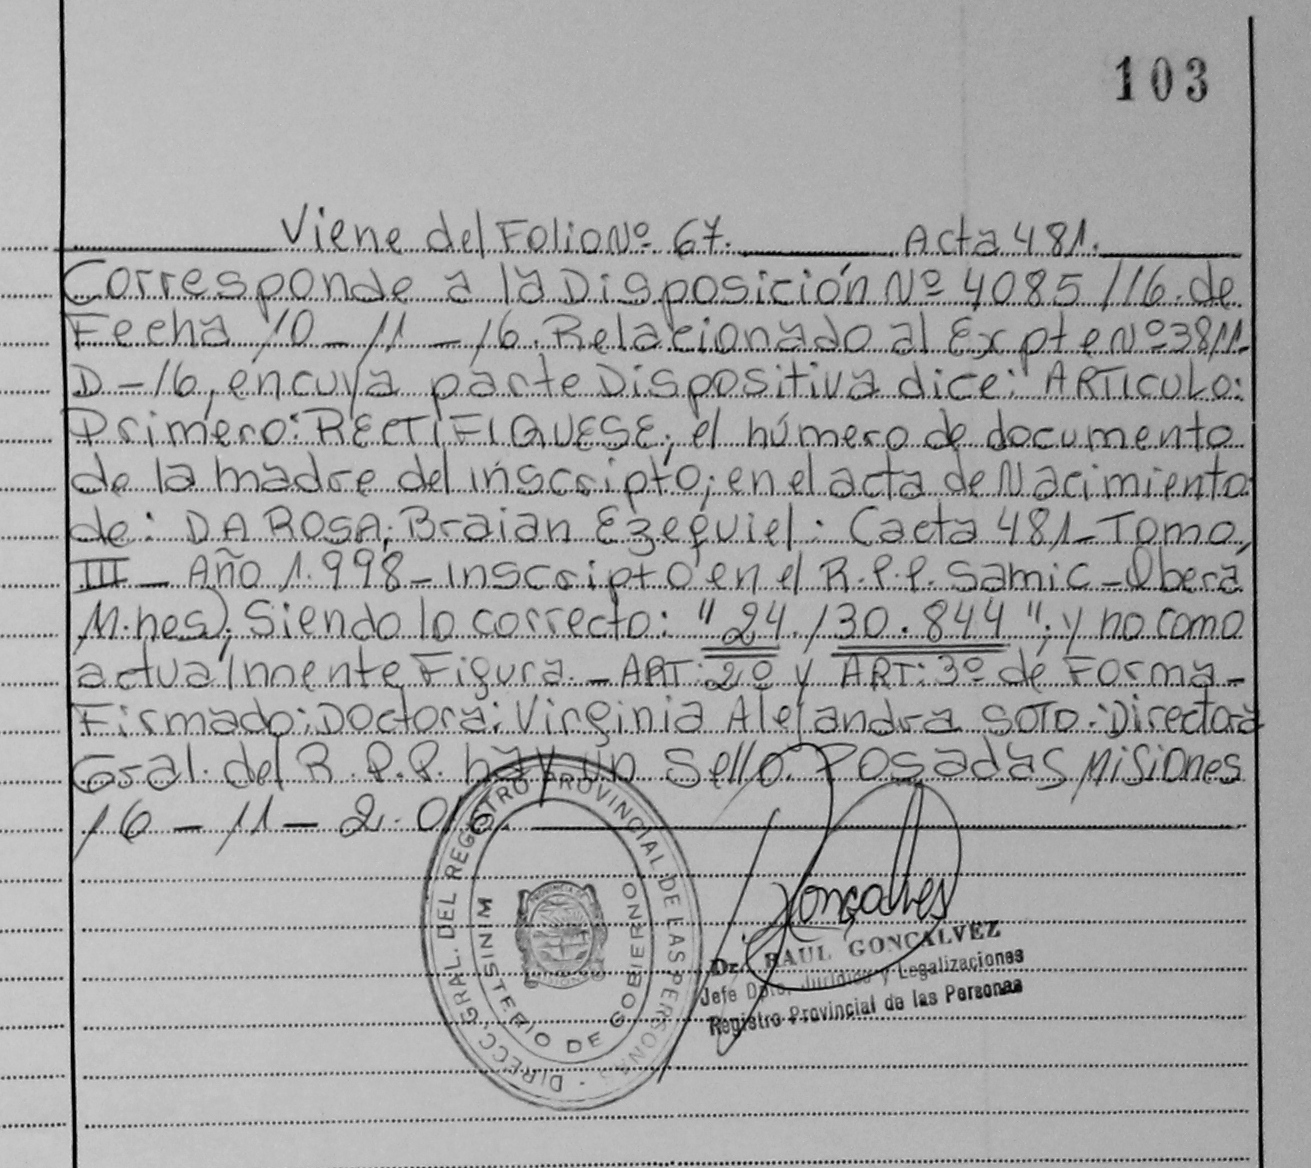 103
Viene del Folio Nº 67. Acta 481.
Corresponde a la Disposición Nº 4085/16. de
Fecha 10-11-16. Relacionado al Expte Nº 3811-
D-16, en cuya parte Dispositiva dice: ARTICULO:
Primero: RECTIFIQUESE; el número de documento
de la madre del inscripto; en el acta de Nacimiento
de: DA ROSA; Braian Ezequiel: (acta 481-Tomo,
III - Año 1.998- inscripto en el R.P.P. Samic - Obera
M.nes); Siendo lo correcto: "24./30.844"; y no como
actualmente Figura.- ART: 2º y ART: 3º de Forma-
Firmado; Doctora; Virginia Alejandra SOTO.: Directora
Gral. del R.P.P. hay un Sello. Posadas Misiones
16-11-2.016.
DIRECC. GRAL. DEL REGISTRO PROVINCIAL DE LAS PERSONAS
MINISTERIO DE GOBIERNO
Dr. RAUL GONCALVEZ
Jefe Dpto. Jurídico y Legalizaciones
Registro Provincial de las Personas